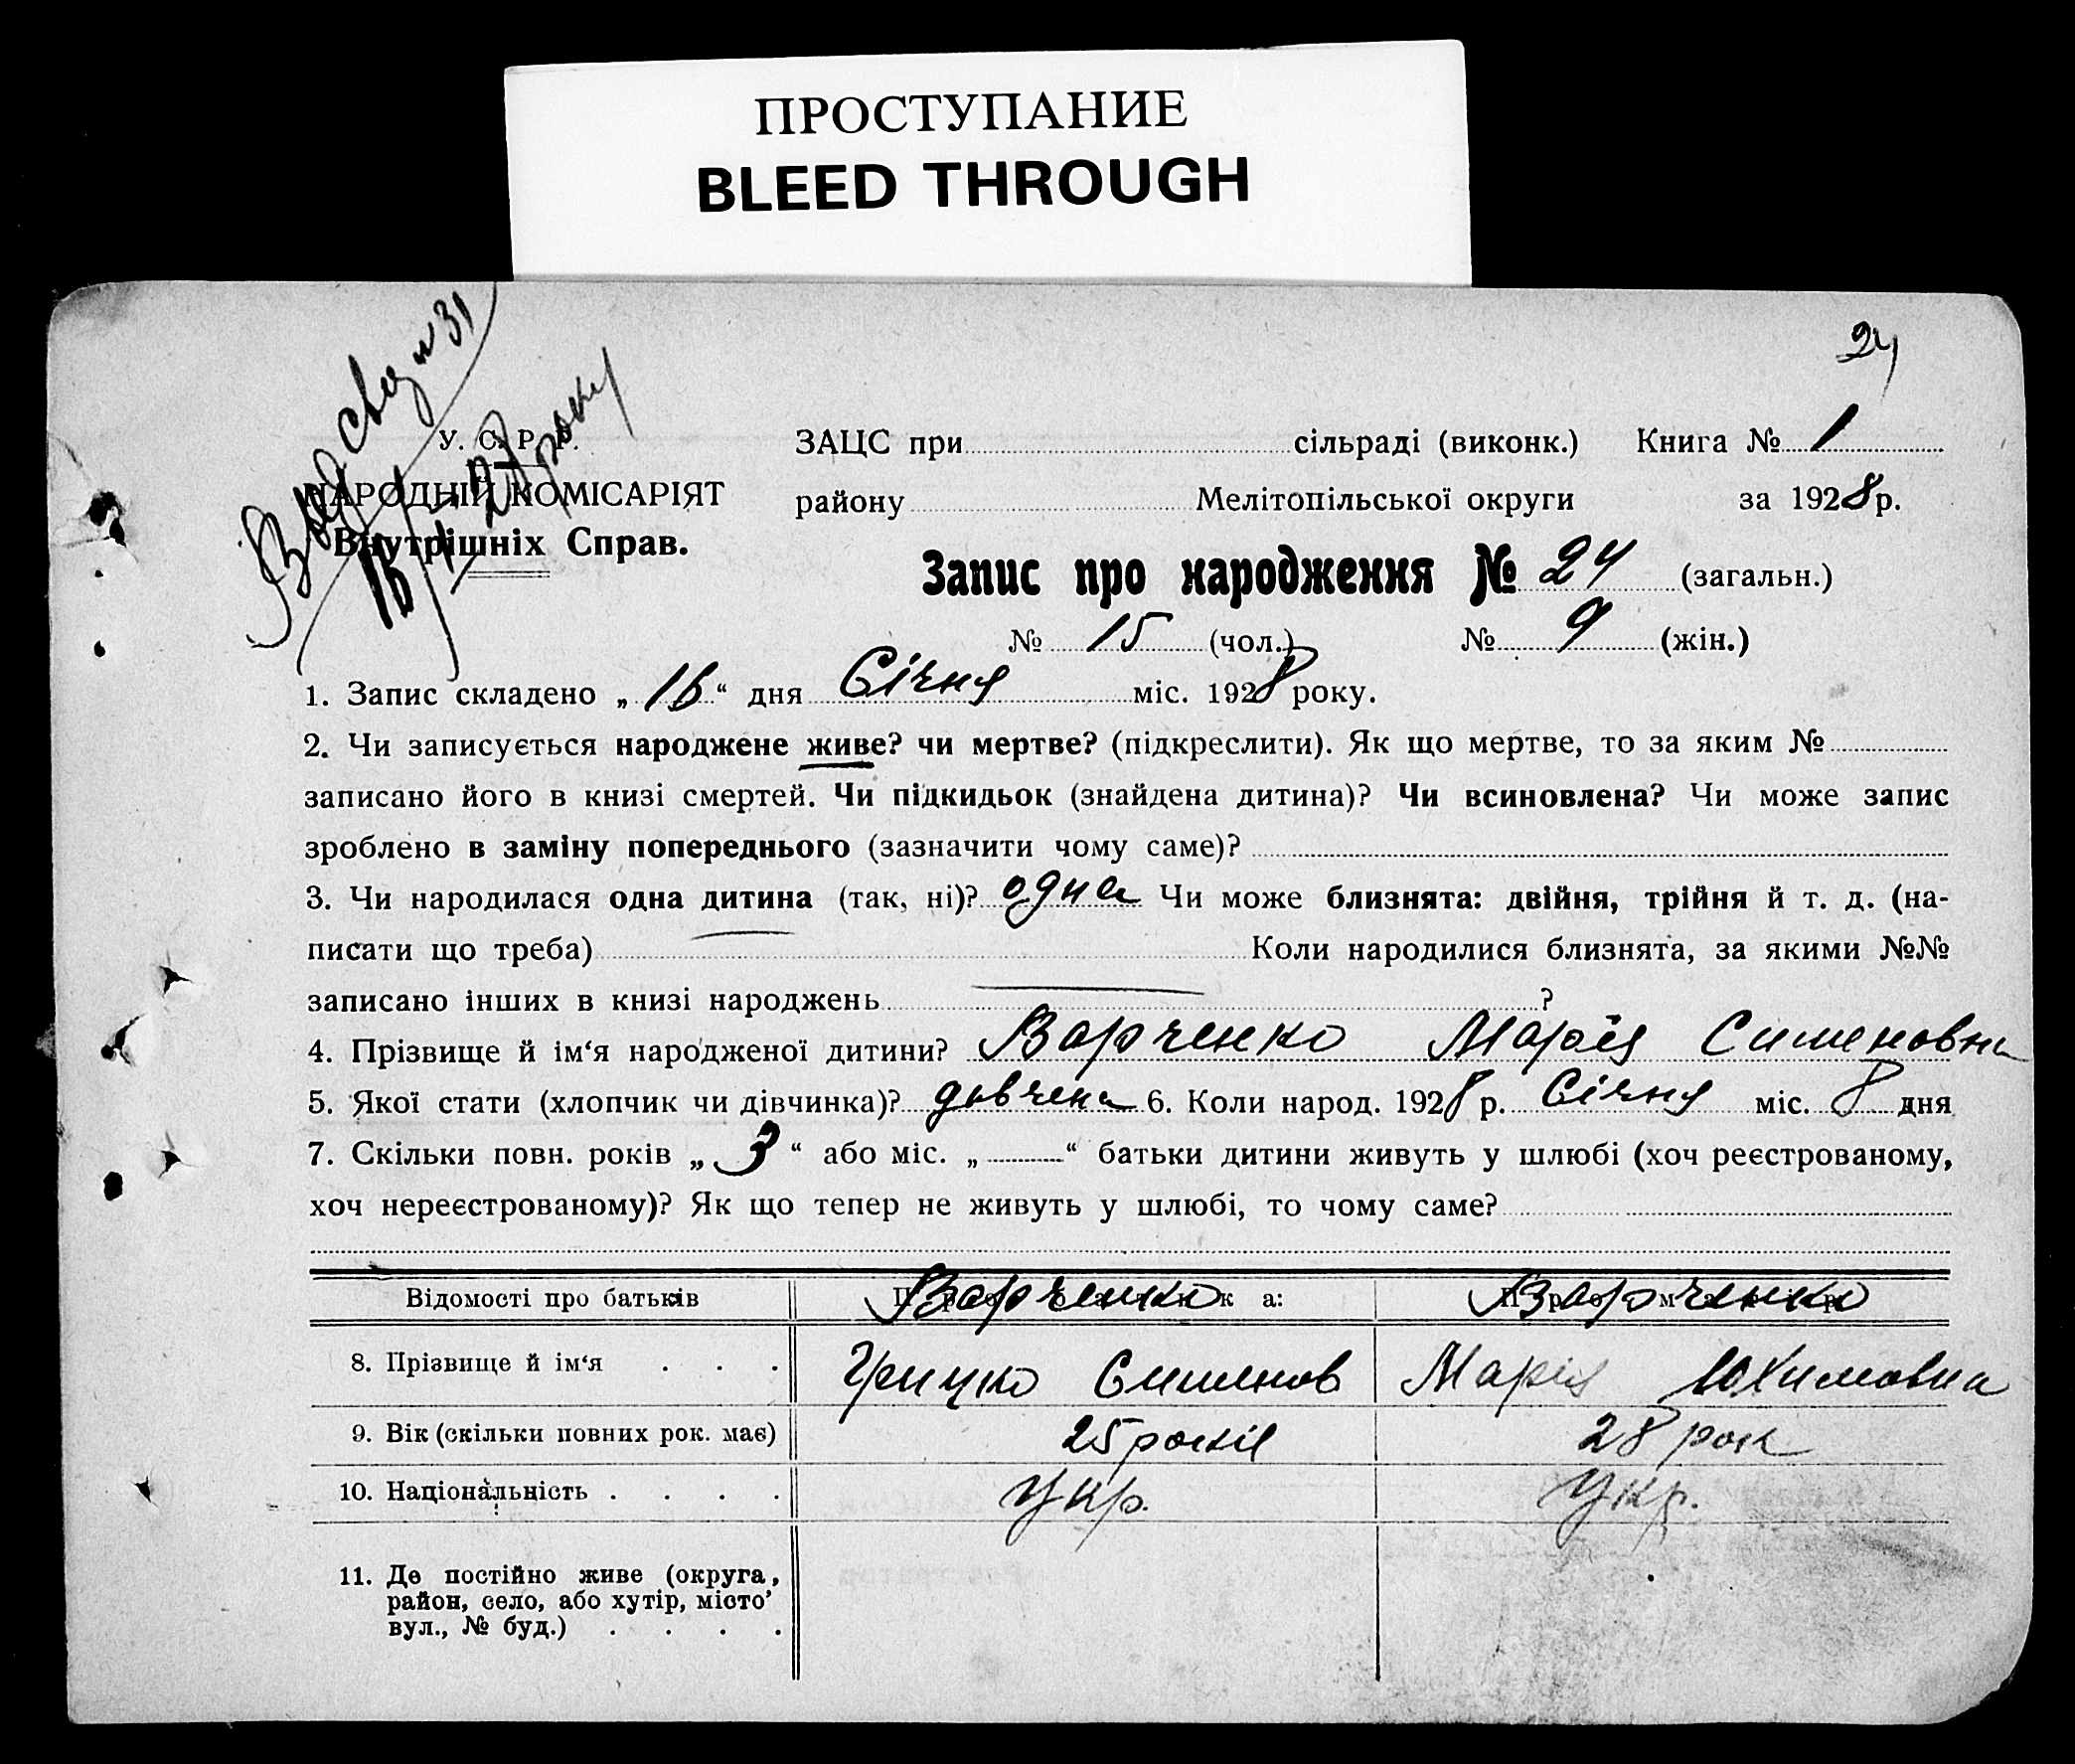 ПРОСТУПАНИЕ
BLEED THROUGH
24
Выд свид № 31
16/I 28 року
У. С. Р. Р.
НАРОДНІЙ КОМІСАРІЯТ
Внутрішніх Справ.
ЗАЦС при сільраді (виконк.) Книга № 1
району Мелітопільської округи за 1928 р.
Запис про народження № 24 (загальн.)
№ 15 (чол.) № 9 (жін.)
1. Запис складено „16“ дня Січня міс. 1928 року.
2. Чи записується народжене живе? чи мертве? (підкреслити). Як що мертве, то за яким №
записано його в книзі смертей. Чи підкидьок (знайдена дитина)? Чи всиновлена? Чи може запис
зроблено в заміну попереднього (зазначити чому саме)?
3. Чи народилася одна дитина (так, ні)? одна Чи може близнята: двійня, трійня й т. д. (на-
писати що треба) — Коли народилися близнята, за якими №№
записано інших в книзі народжень — ?
4. Прізвище й ім‘я народженої дитини? Варченко Марія Сименовна
5. Якої стати (хлопчик чи дівчинка)? дівчена 6. Коли народ. 1928 р. Січня міс. 8 дня
7. Скільки повн. років „3“ або міс. „ “ батьки дитини живуть у шлюбі (хоч реєстрованому,
хоч нереєстрованому)? Як що тепер не живуть у шлюбі, то чому саме?
Відомості про батьків Про батька: Варченко Про матір Варченко
8. Прізвище й ім‘я . . . Грицко Сименов Марія Юхимовна
9. Вік (скільки повних рок. має) 25 років 28 рок
10. Національність . . . . Укр. Укр.
11. Де постійно живе (округа,
район, село, або хутір, місто’
вул., № буд.) . . . .